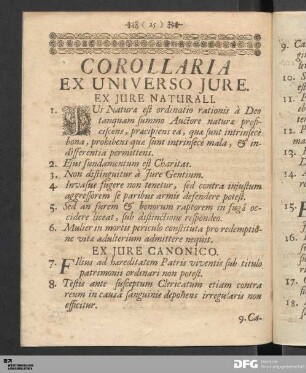 ( 25 )
COROLLARIA
EX UNIVERSO JURE.
EX JURE NATURALI.
1. JUs Naturæ est ordinatio rationis à Deo
tanquam summo Auctore naturæ profi-
ciscens, præcipiens ea, quæ sunt intrinsecè
bona, prohibens quæ sunt intrinsecè mala, & in-
differentia permittens.
2. Ejus fundamentum est Charitas.
3. Non distinguitur à Jure Gentium.
4. Invasus fugere non tenetur, sed contra injustum
aggressorem se paribus armis defendere potest.
5. Sed an furem & bonorum raptorem in fugâ oc-
cidere liceat, sub distinctione respondeo.
6. Mulier in mortis periculo constituta pro redemptio-
ne vitæ adulterium admittere nequit.
EX JURE CANONICO.
7. FIlius ad hæreditatem Patris viventis sub titulo
patrimonii ordinari non potest.
8. Testis ante susceptum Clericatum etiam contra
reum in causâ sanguinis deponens irregularis non
efficitur.
9. Ca-
9. Ca